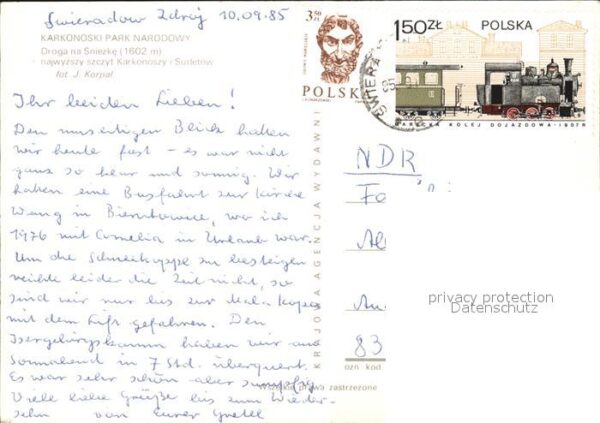 Świeradów Zdrój 10.09.85
KARKONOSKI PARK NARODOWY
Droga na Śnieżkę (1602 m)
najwyższy szczyt Karkonoszy i Sudetów
fot. J. Korpal
Ihr beiden Lieben!
Den umseitigen Blick hatten
wir heute fast - es war nicht
ganz so klar und sonnig. Wir
haben eine Busfahrt zur Kirche
Wang in Bierutowice, wo ich
1976 mit Cornelia in Urlaub war.
Um die Schneekoppe zu besteigen
reichte leider die Zeit nicht, so
sind wir nur bis zur Mala Kopa
mit dem Lift gefahren. Den
Isergebirgskamm haben wir am
Sonnabend in 7 Std. überquert.
Es war sehr schön aber sumpfig.
Viele liebe Grüße bis zum Wieder-
sehn von Eurer
KRAJOWA AGENCJA WYDAWNI
3,50 ZŁ
POLSKA
1,50 ZŁ POLSKA
KOLEJ DOJAZDOWA - 1907 R
ŚWIERA
NDR
83
ozn kod
Wszelkie prawa zastrzeżone
privacy protection
Datenschutz